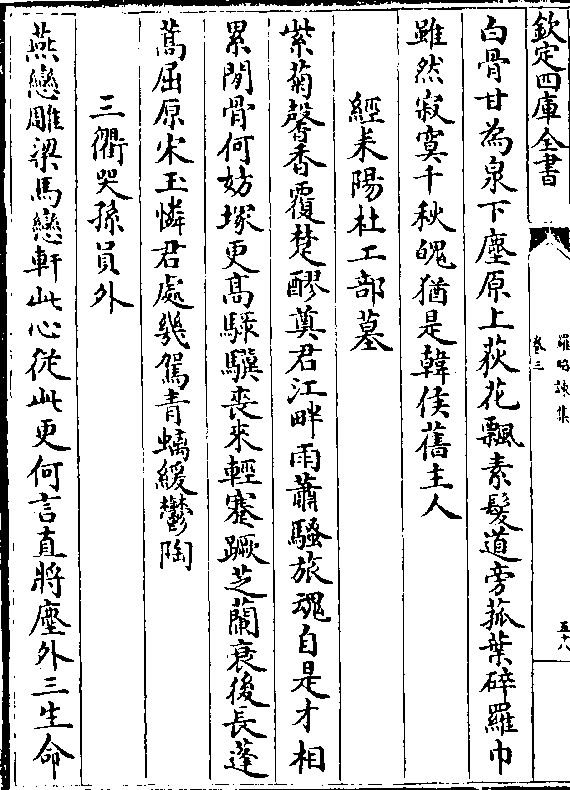 欽定四庫全書
羅昭諫集
卷三
五十八
白骨甘為泉下塵原上荻花飄素髮道旁菰葉碎羅巾
雖然寂寞千秋魄猶是韓侯舊主人
經耒陽杜工部墓
紫菊馨香覆楚醪奠君江畔雨蕭騷旅魂自是才相
累閒骨何妨塚更高騄驥喪來輕蹇蹶芝蘭衰後長蓬
蒿屈原宋玉憐君處幾駕青螭緩鬱陶
三衢哭孫員外
燕戀雕梁馬戀軒此心從此更何言直將塵外三生命